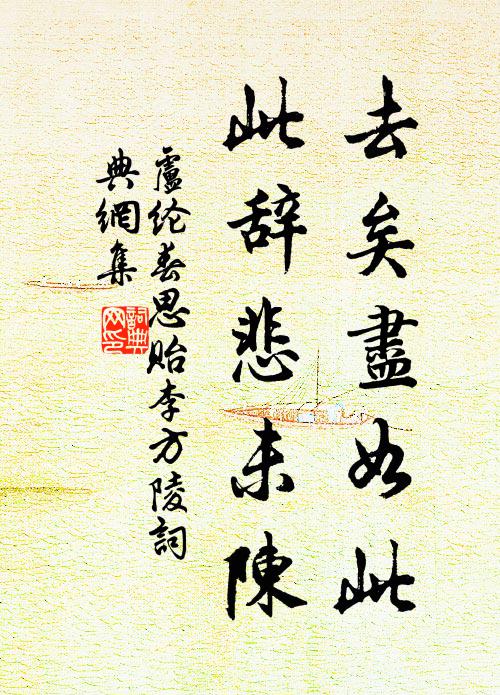 去矣盡如此
此辞悲未陳
盧纶春思贻李方陵詞
典網集
詞典
网印